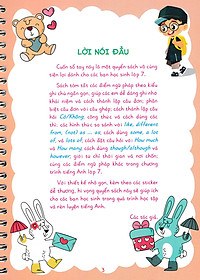 LỜI NÓI ĐẦU
Cuốn sổ tay này là một quyển sách vô cùng
tiện lợi dành cho các bạn học sinh lớp 7.
Sách tóm tắt các điểm ngữ pháp theo kiểu
ghi chú ngắn gọn, giúp các em dễ dàng ghi nhớ
khái niệm và cách thành lập câu đơn; phân
biệt câu đơn với câu ghép; cách thành lập câu
hỏi Có/Không; công thức và cách dùng các
thì; các hình thức so sánh với like, different
from, (not) as ... as; cách dùng some, a lot
of, lots of; cách đặt câu hỏi với: How much
và How many; cách dùng although/though và
however; giới từ chỉ thời gian và nơi chốn;
cùng các điểm ngữ pháp khác trong chương
trình tiếng Anh lớp 7.
Với thiết kế nhỏ gọn, kèm theo các sticker
dễ thương, hi vọng quyển sách này sẽ giúp ích
cho các bạn học sinh trong quá trình học tập
và rèn luyện tiếng Anh.
Các tác giả.
3